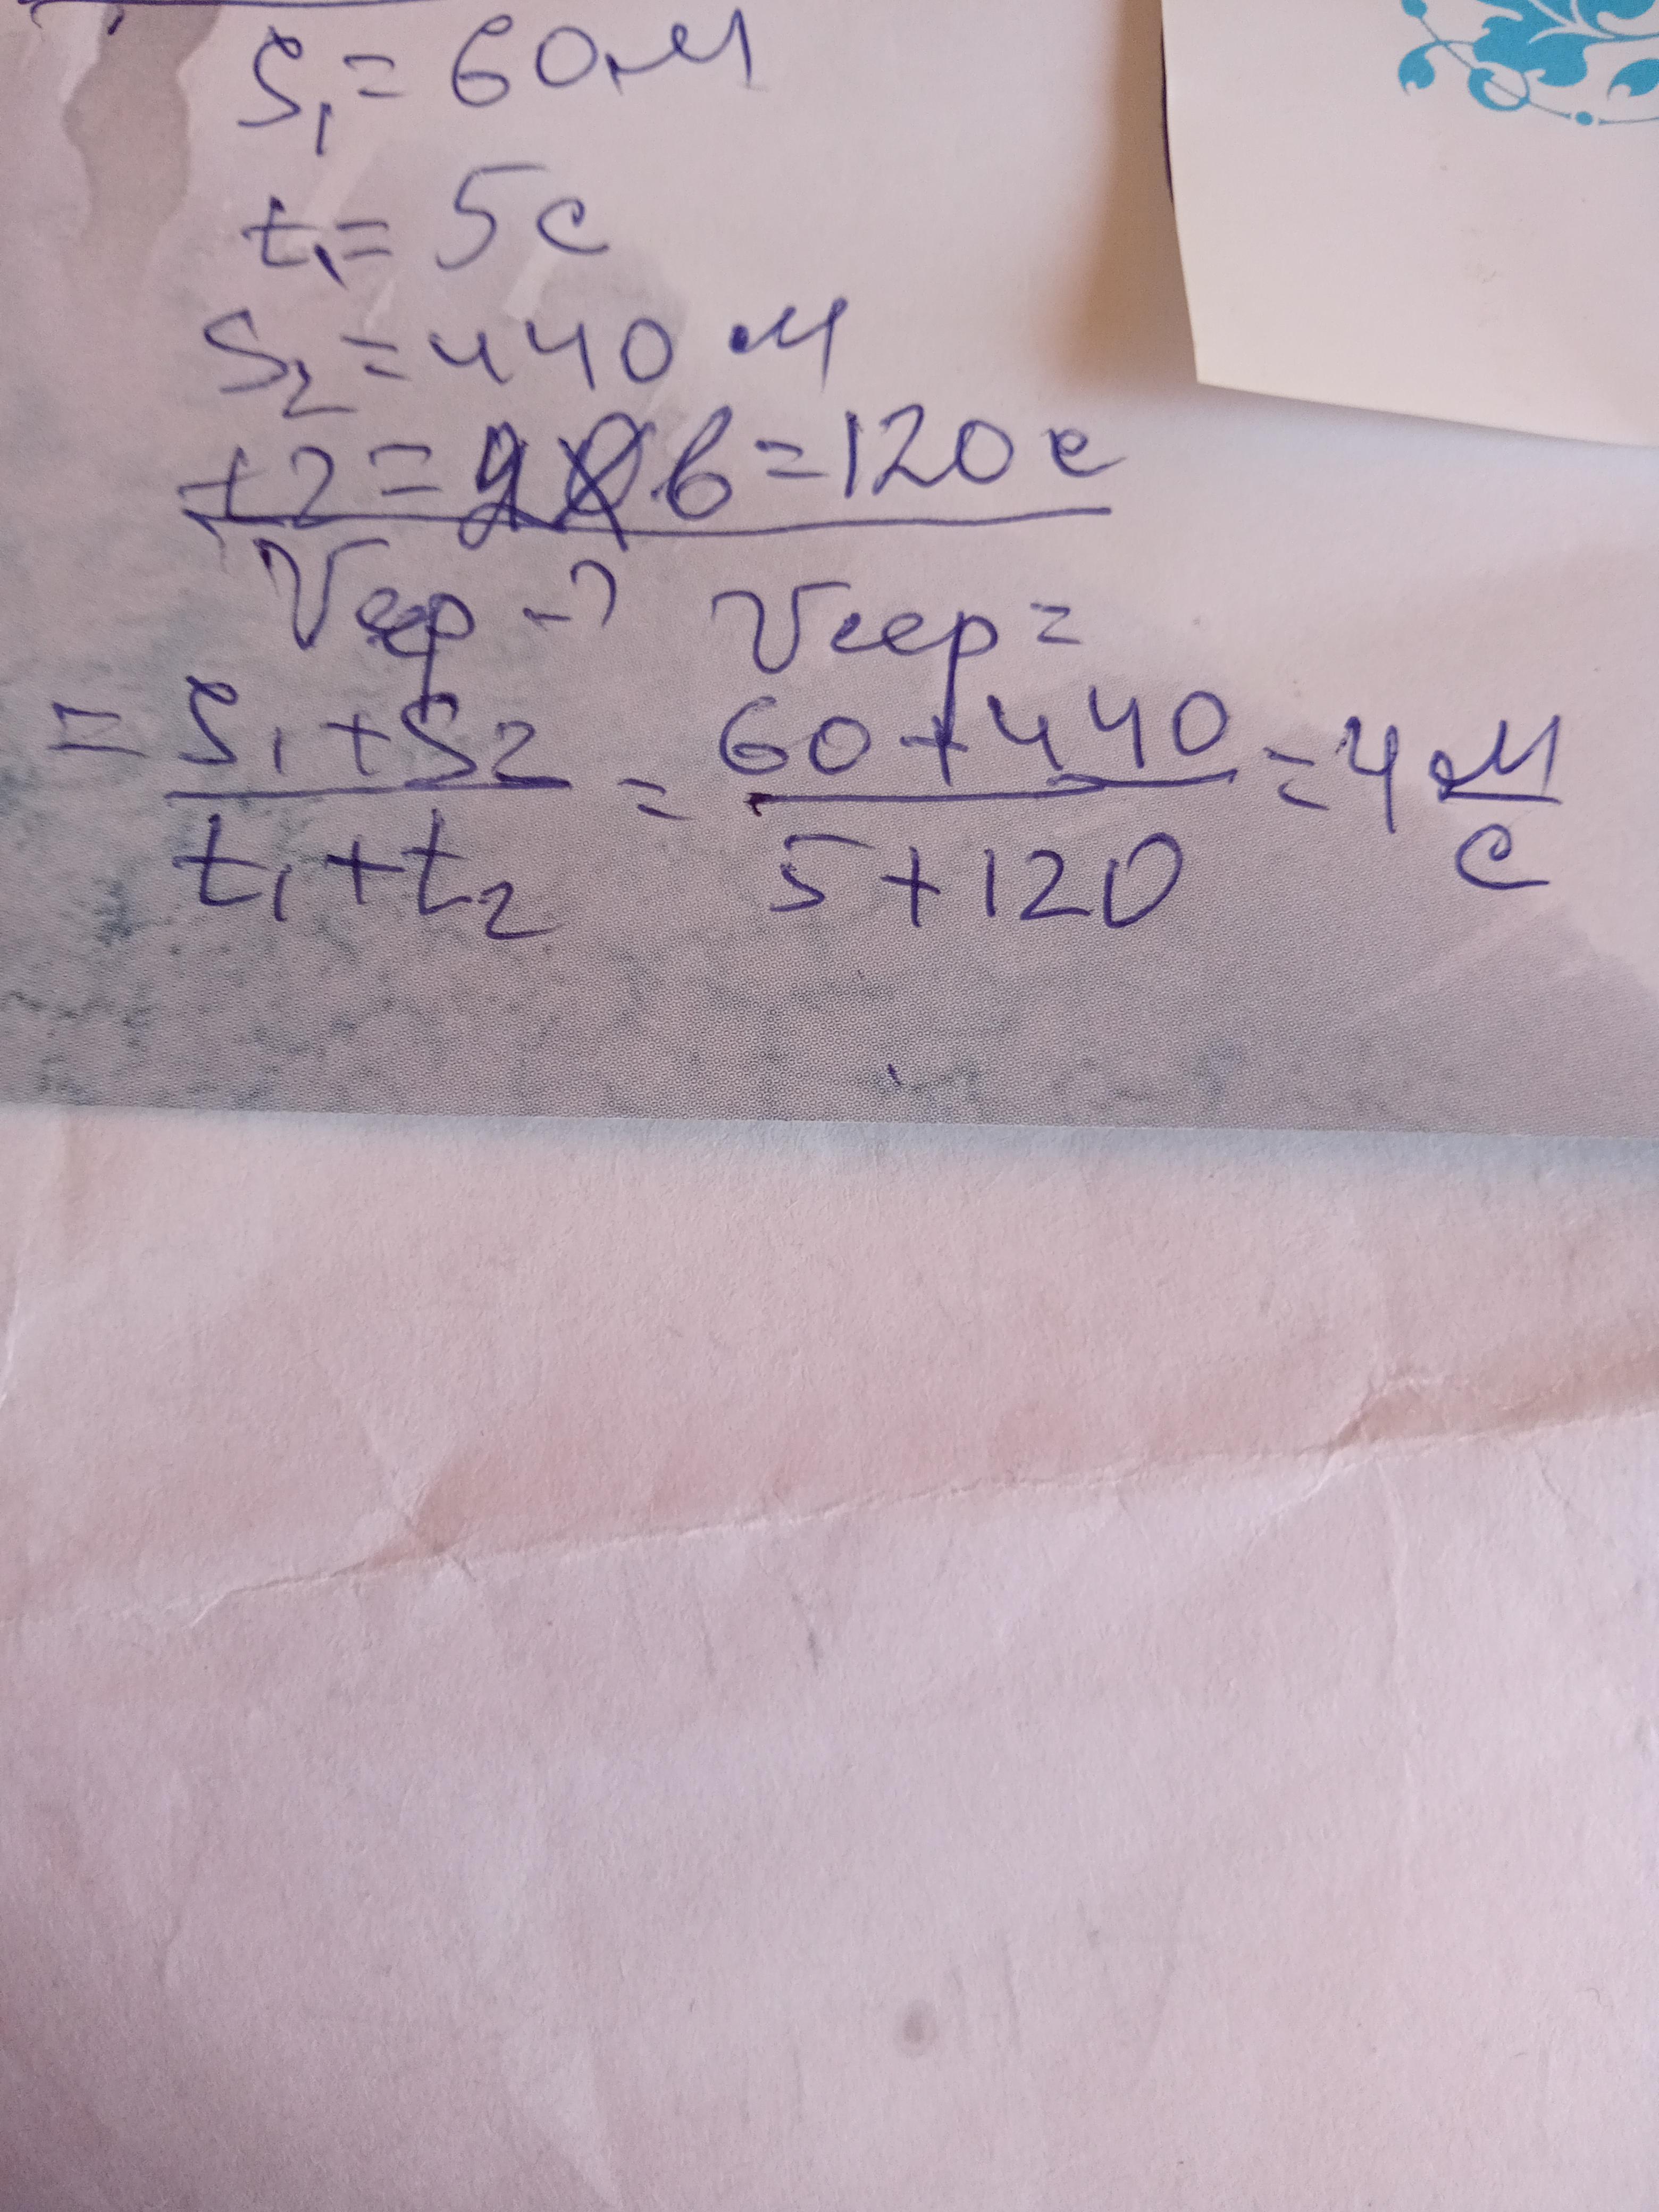 S₁ = 60 м
t₁ = 5 с
S₂ = 440 м
t2 = = 120 с
Vср - ? Vсср =
= S₁ + S2 / t₁ + t₂ = 60 + 440 / 5 + 120 = 4 м/с